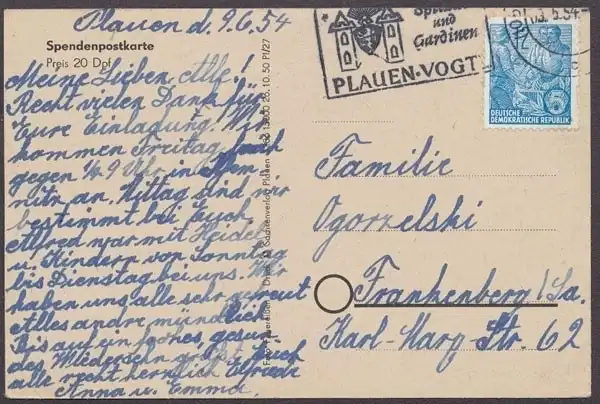 Plauen d. 9.6.54
Spendenpostkarte
Preis 20 Dpf
Meine Lieben Alle!
Recht vielen Dank für
Eure Einladung. Wir
kommen Freitag, nach
gegen ¼9 Uhr in Chem
nitz an. Mittag sind wir
bestimmt bei Euch.
Alfred war mit Heidel
u. Kindern von Sonntag
bis Dienstag bei uns. Wir
haben uns alle sehr gefreut
Alles andre mündlich
Bis auf ein frohes, gesun
des Wiedersehn grüßt Euch
alle recht herzlich Elfriede
Anna u. Emma.
28.10.50 Pl/27
und
Gardinen
PLAUEN-VOGTL
5.54-
DEUTSCHE
DEMOKRATISCHE REPUBLIK
5
Familie
Ogorzelski
Frankenberg/Sa.
Karl-Marx-Str. 62